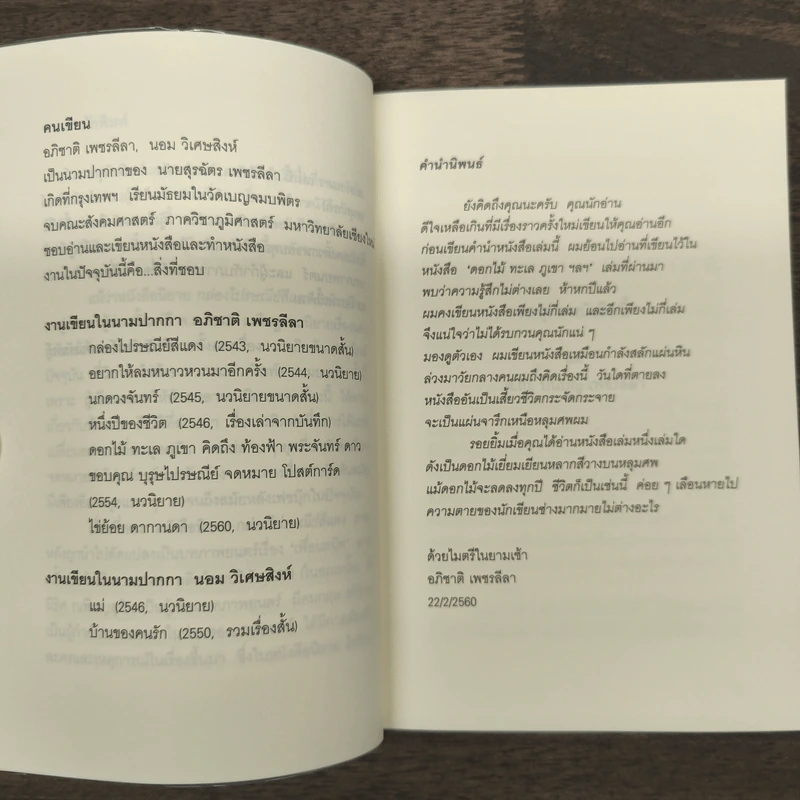 คนเขียน
อภิชาติ เพชรลีลา, นอม วิเศษสิงห์
เป็นนามปากกาของ นายสุรฉัตร เพชรลีลา
เกิดที่กรุงเทพฯ เรียนมัธยมในวัดเบญจมบพิตร
จบคณะสังคมศาสตร์ ภาควิชาภูมิศาสตร์ มหาวิทยาลัยเชียงใหม่
ชอบอ่านและเขียนหนังสือและทำหนังสือ
งานในปัจจุบันนี้คือ...สิ่งที่ชอบ
งานเขียนในนามปากกา อภิชาติ เพชรลีลา
กล่องไปรษณีย์สีแดง (2543, นวนิยายขนาดสั้น)
อยากให้ลมหนาวหวนมาอีกครั้ง (2544, นวนิยาย)
นกดวงจันทร์ (2545, นวนิยายขนาดสั้น)
หนึ่งปีของชีวิต (2546, เรื่องเล่าจากบันทึก)
ดอกไม้ ทะเล ภูเขา คิดถึง ท้องฟ้า พระจันทร์ ดาว
ขอบคุณ บุรุษไปรษณีย์ จดหมาย โปสต์การ์ด
(2554, นวนิยาย)
ไข่ย้อย ดากานดา (2560, นวนิยาย)
งานเขียนในนามปากกา นอม วิเศษสิงห์
แม่ (2546, นวนิยาย)
บ้านของคนรัก (2550, รวมเรื่องสั้น)
คำนำนิพนธ์
ยังคิดถึงคุณนะครับ คุณนักอ่าน
ดีใจเหลือเกินที่มีเรื่องราวครั้งใหม่เขียนให้คุณอ่านอีก
ก่อนเขียนคำนำหนังสือเล่มนี้ ผมย้อนไปอ่านที่เขียนไว้ใน
หนังสือ 'ดอกไม้ ทะเล ภูเขา ฯลฯ' เล่มที่ผ่านมา
พบว่าความรู้สึกไม่ต่างเลย ห้าหกปีแล้ว
ผมคงเขียนหนังสือเพียงไม่กี่เล่ม และอีกเพียงไม่กี่เล่ม
จึงแน่ใจว่าไม่ได้รบกวนคุณนักแน่ ๆ
มองดูตัวเอง ผมเขียนหนังสือเหมือนกำลังสลักแผ่นหิน
ล่วงมาวัยกลางคนผมถึงคิดเรื่องนี้ วันใดที่ตายลง
หนังสืออันเป็นเสี้ยวชีวิตกระจัดกระจาย
จะเป็นแผ่นจารึกเหนือหลุมศพผม
รอยยิ้มเมื่อคุณได้อ่านหนังสือเล่มหนึ่งเล่มใด
ดังเป็นดอกไม้เยี่ยมเยียนหลากสีวางบนหลุมศพ
แม้ดอกไม้จะลดลงทุกปี ชีวิตก็เป็นเช่นนี้ ค่อย ๆ เลือนหายไป
ความตายของนักเขียนช่างมากมายไม่ต่างอะไร
ด้วยไมตรีในยามเช้า
อภิชาติ เพชรลีลา
22/2/2560